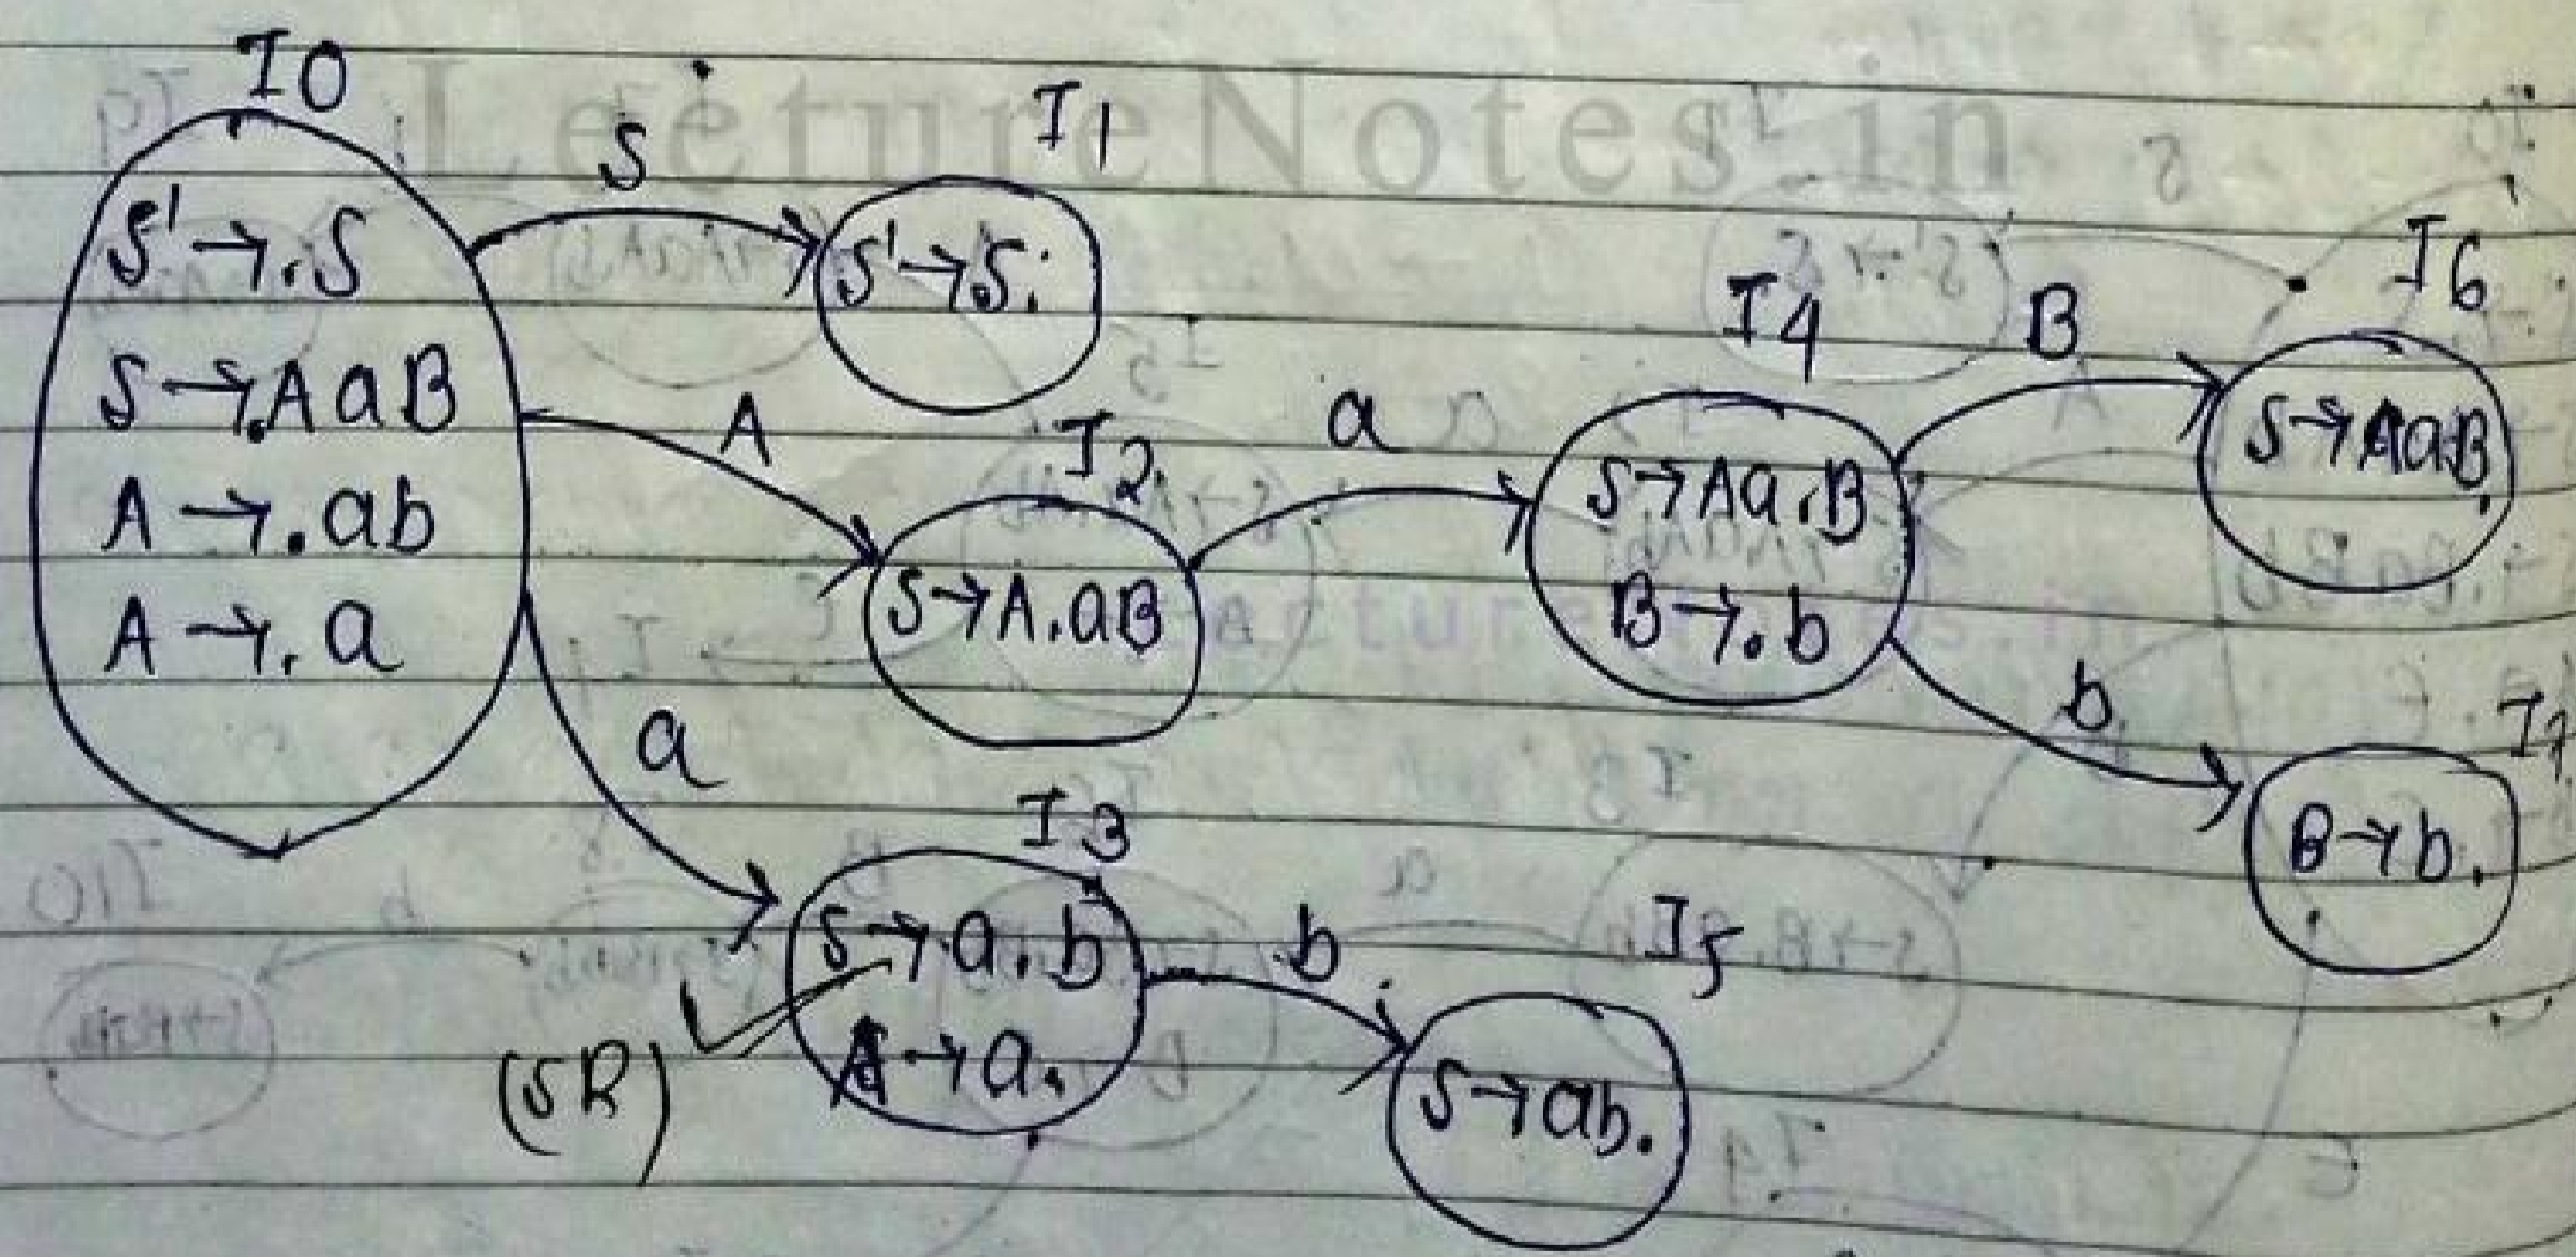 I0
LectureNotes.in
S' → .S
S → .AaB
A → .ab
A → .a
S
I1
S' → S.
A
I2
S → A.aB
a
I4
S → Aa.B
B → .b
B
I6
S → AaB.
b
I7
B → b.
a
I3
S → a.b
A → a.
(SR)
b
I5
S → ab.